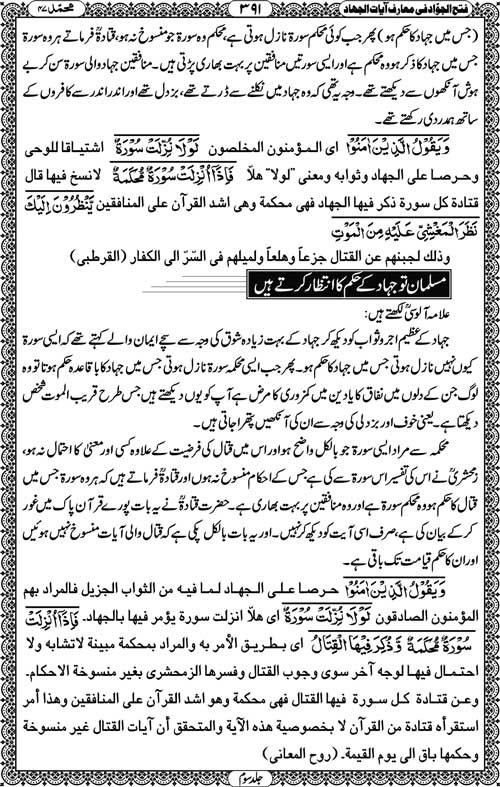 فتح الجوّاد فی معارف آیات الجهاد ۳۹۱ محمّدؐ ۴۷
(جس میں جہاد کا حکم ہو) پھر جب کوئی محکم سورۃ نازل ہوتی ہے، محکم وہ سورۃ جو منسوخ نہ ہو، قتادہؒ فرماتے ہر وہ سورۃ
جس میں جہاد کا ذکر ہو وہ محکم ہے اور ایسی سورتیں منافقین پر بہت بھاری پڑتی ہیں۔ منافقین جہاد والی سورۃ سن کر بے
ہوش آنکھوں سے دیکھتے تھے۔ وجہ یہ تھی کہ وہ جہاد میں نکلنے سے ڈرتے تھے، بزدل تھے اور اندر اندر سے کافروں کے
ساتھ ہمدردی رکھتے تھے۔
وَيَقُولُ الَّذِينَ اٰمَنُوْا ای المؤمنون المخلصون لَوْلَا نُزِّلَتْ سُورَةٌ اشتیاقا للوحی
وحرصا علی الجهاد وثوابه ومعنی "لولا" هلّا فَاِذَآ اُنْزِلَتْ سُورَةٌ مُّحْكَمَةٌ لانسخ فیها قال
قتادة کل سورة ذکر فیها الجهاد فهی محکمة وهی اشد القرآن علی المنافقین يَنْظُرُونَ اِلَيْكَ
نَظَرَ الْمَغْشِيِّ عَلَيْهِ مِنَ الْمَوْتِ
وذلك لجبنهم عن القتال جزعاً وهلعاً ولمیلهم فی السّرّ الی الکفار (القرطبی)
مسلمان تو جہاد کے حکم کا انتظار کرتے ہیں
علامہ آلوسیؒ لکھتے ہیں:
جہاد کے عظیم اجر و ثواب کو دیکھ کر جہاد کے بہت زیادہ شوق کی وجہ سے سچے ایمان والے کہتے تھے کہ ایسی سورۃ
کیوں نہیں نازل ہوتی جس میں جہاد کا حکم ہو۔ پھر جب ایسی محکمہ سورۃ نازل ہوتی جس میں جہاد کا باقاعدہ حکم ہوتا تو وہ
لوگ جن کے دلوں میں نفاق کا یا دین میں کمزوری کا مرض ہے آپ کو یوں دیکھتے ہیں جس طرح قریب الموت شخص
دیکھتا ہے۔ یعنی خوف اور بزدلی کی وجہ سے ان کی آنکھیں پتھرا جاتی ہیں۔
محکمہ سے مراد ایسی سورۃ جو بالکل واضح ہو اور اس میں قتال کی فرضیت کے علاوہ کسی اور معنیٰ کا احتمال نہ ہو،
زمخشریؒ نے اس کی تفسیر اس سورۃ سے کی ہے جس کے احکام منسوخ نہ ہوں اور قتادہؒ فرماتے ہیں کہ ہر وہ سورۃ جس میں
قتال کا حکم ہو وہ محکم سورۃ ہے اور وہ منافقین پر بہت بھاری ہے۔ حضرت قتادہؒ نے یہ بات پورے قرآن پاک میں غور
کر کے بیان کی ہے، صرف اسی آیت کو دیکھ کر نہیں۔ اور یہ بات بالکل پکی ہے کہ قتال والی آیات منسوخ نہیں ہوئیں
اور ان کا حکم قیامت تک باقی ہے۔
وَيَقُولُ الَّذِينَ اٰمَنُوْا حرصا علی الجهاد لما فیه من الثواب الجزیل فالمراد بهم
المؤمنون الصادقون لَوْلَا نُزِّلَتْ سُورَةٌ ای هلّا انزلت سورة یؤمر فیها بالجهاد. فَاِذَآ اُنْزِلَتْ
سُورَةٌ مُّحْكَمَةٌ وَّذُكِرَ فِيهَا الْقِتَالُ ای بطریق الأمر به والمراد بمحکمة مبینة لاتشابه ولا
احتمال فیها لوجه آخر سوی وجوب القتال وفسرها الزمخشری بغیر منسوخة الاحکام.
وعن قتادة کل سورة فیها القتال فهی محکمة وهو اشد القرآن علی المنافقین وهذا أمر
استقرأه قتادة من القرآن لا بخصوصیة هذه الآیة والمتحقق أن آیات القتال غیر منسوخة
وحکمها باق الی یوم القیمة. (روح المعانی)
جلد سوم